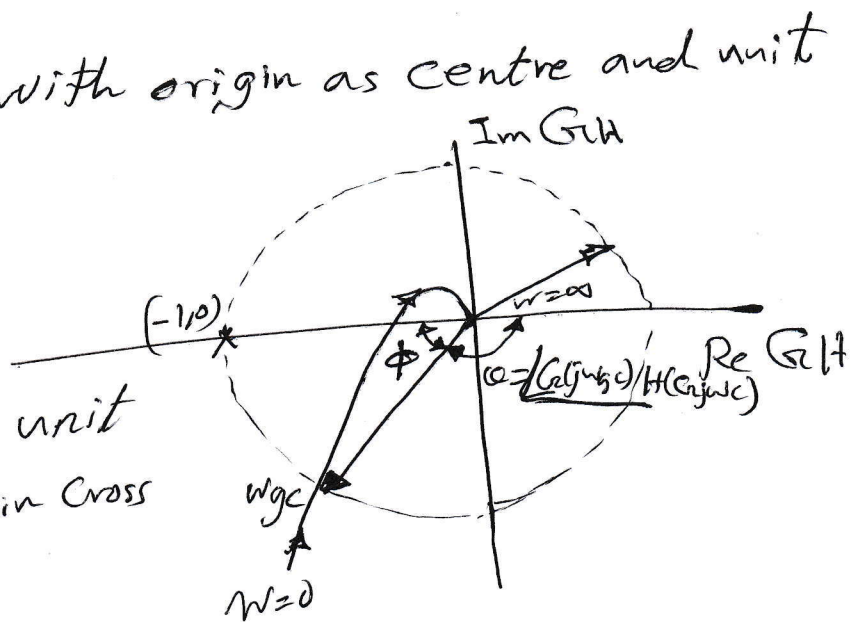 with origin as centre and unit
Im GH
(-1,0)
w=∞
ϕ
Re GH
unit
in Cross
wgc
w=0